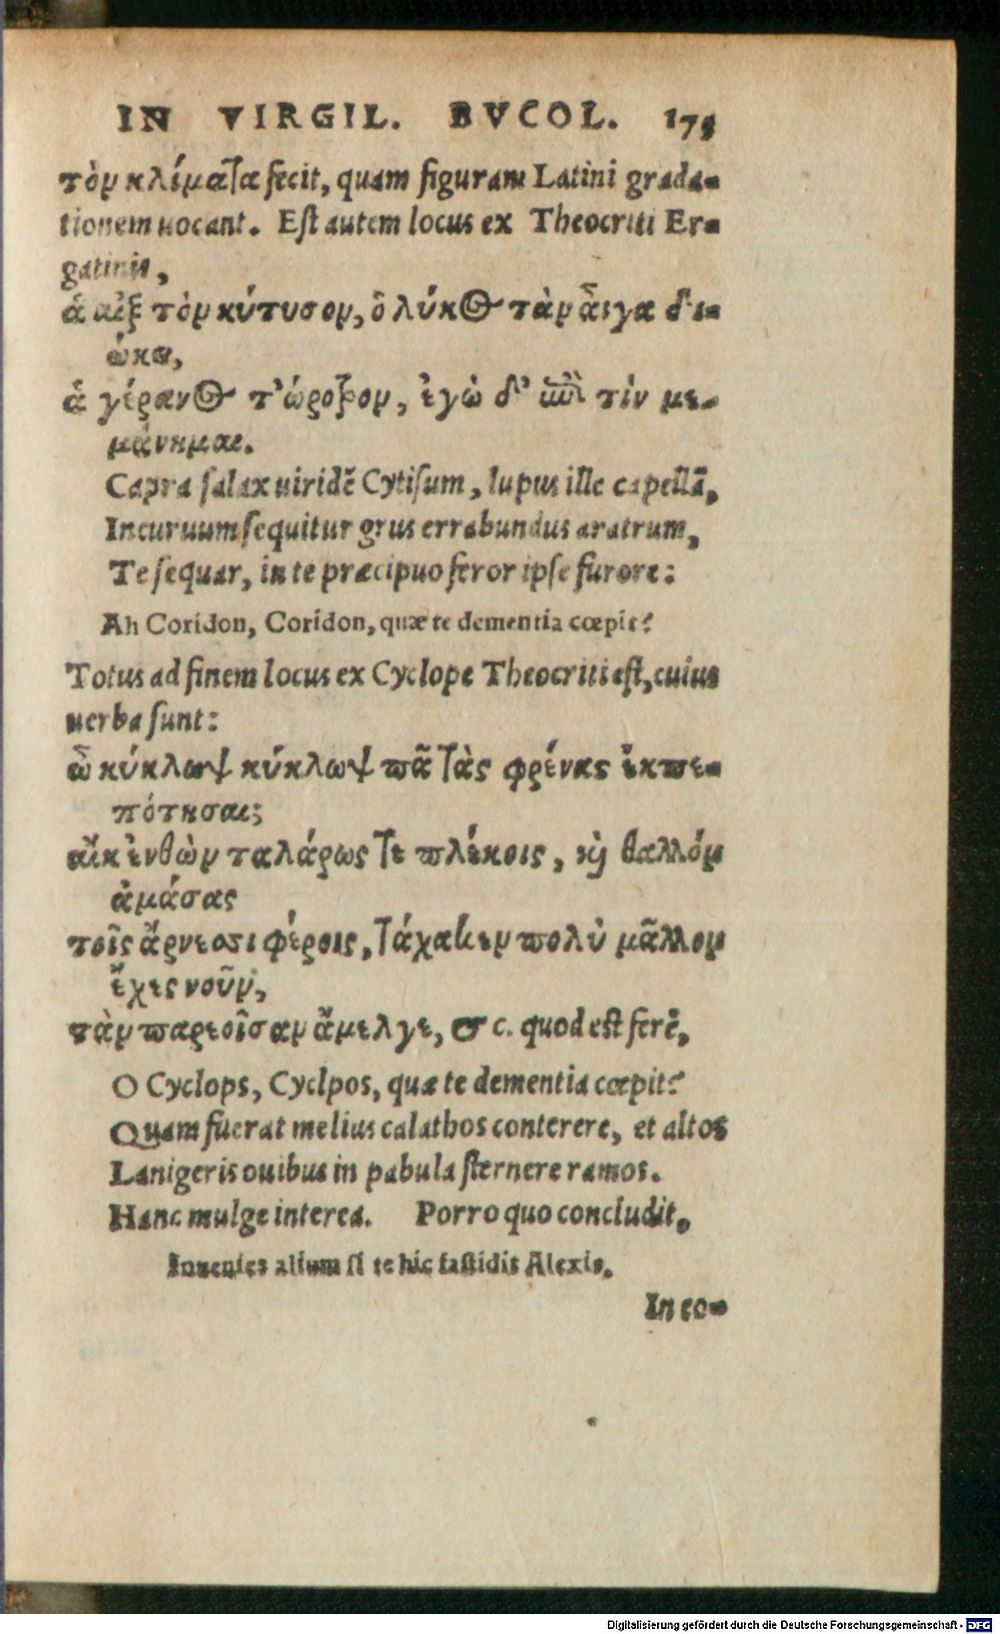 IN VIRGIL. BVCOL. 175
τὸν κλίματα fecit, quam figuram Latini grada-
tionem uocant. Est autem locus ex Theocriti Er-
gatinis,
ἁ αἲξ τὸν κύτυσον, ὁ λύκος τὰν αἶγα δι-
ώκει,
ἁ γέρανος τ' ὤροτρον, ἐγὼ δ' ἐπὶ τὶν με-
μάνημαι.
Capra salax uiridē Cytisum, lupus ille capellā,
Incuruum sequitur grus errabundus aratrum,
Te sequar, in te præcipuo feror ipse furore:
Ah Coridon, Coridon, quæ te dementia cœpit?
Totus ad finem locus ex Cyclope Theocriti est, cuius
uerba sunt:
ὦ κύκλωψ κύκλωψ πᾶ τὰς φρένας ἐκπε-
πότησαι;
αἴκ' ἐνθὼν ταλάρως τε πλέκοις, καὶ θαλλὸν
ἀμάσας
τοῖς ἄρνεσσι φέροις, τάχα κεν πολὺ μᾶλλον
ἔχες νοῦν,
τὰν παρεοῖσαν ἄμελγε, & c. quod est ferè,
O Cyclops, Cyclpos, quæ te dementia cœpit?
Quam fuerat melius calathos conterere, et altos
Lanigeris ouibus in pabula sternere ramos.
Hanc mulge interea. Porro quo concludit,
Inuenies alium si te hic fastidit Alexis.
In eo-
Digitalisierung gefördert durch die Deutsche Forschungsgemeinschaft - DFG